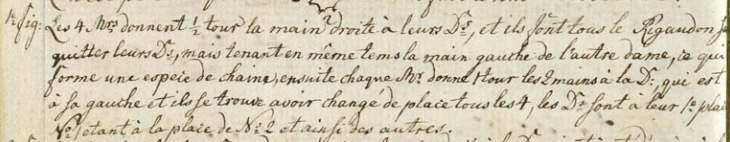 1re fig: Les 4 Mrs donnent 1/2 tour la main droite à leurs Ds, et ils font tous le Rigaudon sa
quitter leurs Ds, mais tenant en même tems la main gauche de l'autre dame, ce qui
forme une espèce de chaine, ensuite chaque Mr donne 1 tour les 2 mains à la De, qui est
à sa gauche et ils se trouve avoir changé de place tous les 4, les Ds sont à leur 1e place
No 1 etant à la place de No 2 et ainsi des autres.